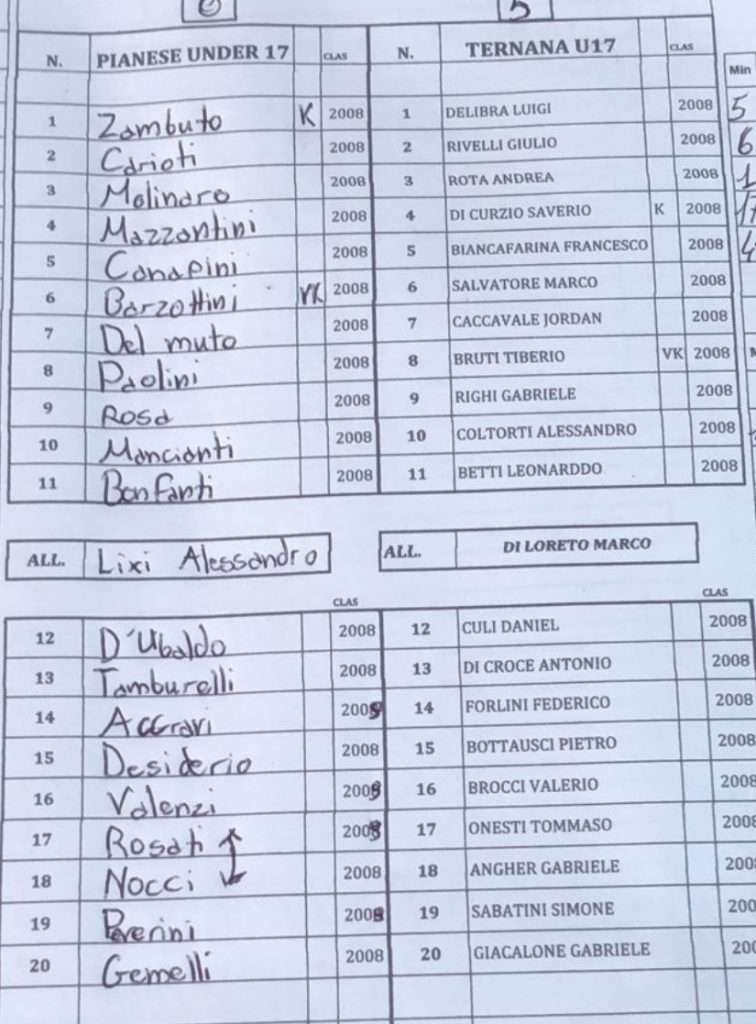 5
N. PIANESE UNDER 17 CLAS N. TERNANA U17 CLAS
Min
1 Zambuto K 2008 1 DELIBRA LUIGI 2008 5
2 Carioti 2008 2 RIVELLI GIULIO 2008 6
3 Molinaro 2008 3 ROTA ANDREA 2008 1
4 Mazzantini 2008 4 DI CURZIO SAVERIO K 2008
5 Canapini 2008 5 BIANCAFARINA FRANCESCO 2008 4
6 Barzottini VK 2008 6 SALVATORE MARCO 2008
7 Del muto 2008 7 CACCAVALE JORDAN 2008
8 Paolini 2008 8 BRUTI TIBERIO VK 2008
9 Rosa 2008 9 RIGHI GABRIELE 2008
10 Mancianti 2008 10 COLTORTI ALESSANDRO 2008
11 Bonfanti 2008 11 BETTI LEONARDDO 2008
ALL. Lixi Alessandro ALL. DI LORETO MARCO
CLAS CLAS
12 D'Ubaldo 2008 12 CULI DANIEL 2008
13 Tamburelli 2008 13 DI CROCE ANTONIO 2008
14 Accravi 2009 14 FORLINI FEDERICO 2008
15 Desiderio 2008 15 BOTTAUSCI PIETRO 2008
16 Valenzi 2009 16 BROCCI VALERIO 2008
17 Rosati 17 ONESTI TOMMASO 2008
18 Nocci 2008 18 ANGHER GABRIELE
19 Peverini 2008 19 SABATINI SIMONE
20 Gemelli 2008 20 GIACALONE GABRIELE